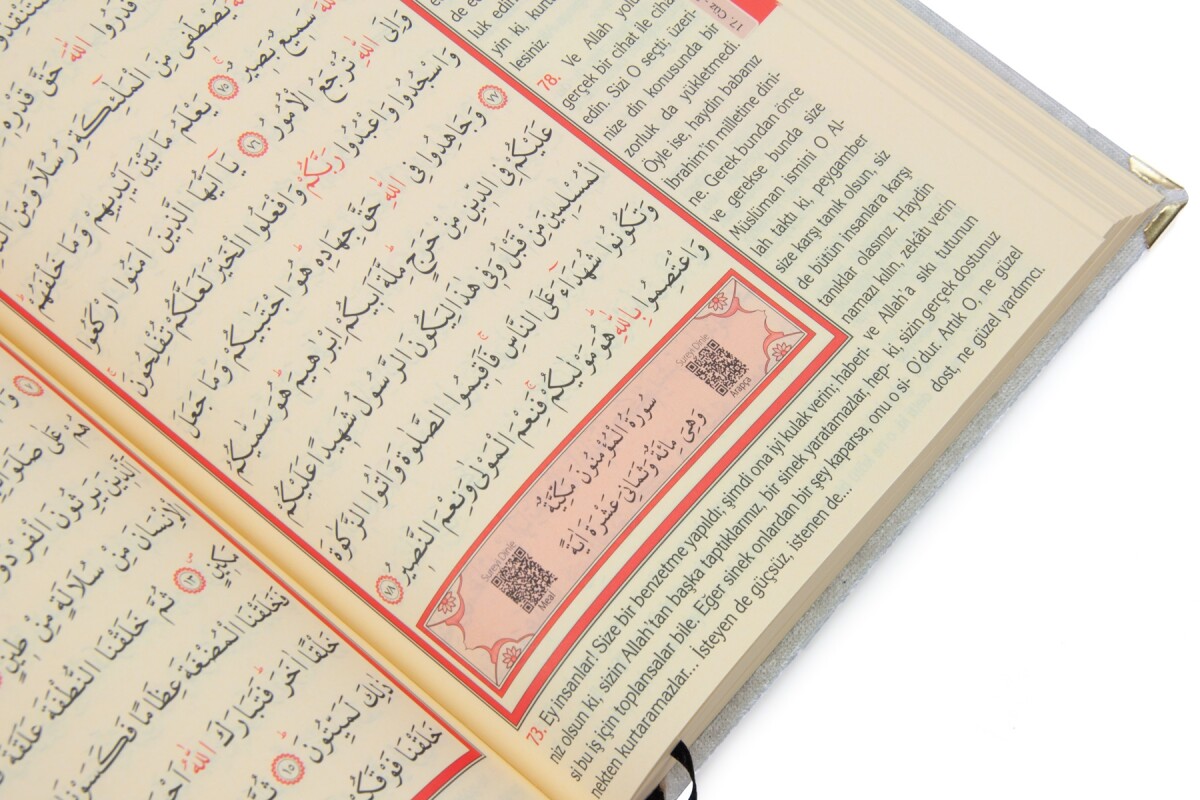 قَدَرُوا اللّٰهَ حَقَّ قَدْرِه۪
يَصْطَف۪ي مِنَ الْمَلٰٓئِكَةِ رُسُلًا وَمِنَ
سَم۪يعٌ بَص۪يرٌ ٧٥ يَعْلَمُ مَا بَيْنَ اَيْد۪يهِمْ وَمَا خَلْفَهُمْ
وَاِلَى اللّٰهِ تُرْجَعُ الْاُمُورُ ٧٦ يَٓا اَيُّهَا الَّذ۪ينَ اٰمَنُوا ارْكَعُوا
وَاسْجُدُوا وَاعْبُدُوا رَبَّكُمْ وَافْعَلُوا الْخَيْرَ لَعَلَّكُمْ تُفْلِحُونَ
٧٧ وَجَاهِدُوا فِي اللّٰهِ حَقَّ جِهَادِه۪ هُوَ اجْتَبٰيكُمْ وَمَا جَعَلَ
عَلَيْكُمْ فِي الدّ۪ينِ مِنْ حَرَجٍ مِلَّةَ اَب۪يكُمْ اِبْرٰه۪يمَ هُوَ سَمّٰيكُمُ
الْمُسْلِم۪ينَ مِنْ قَبْلُ وَف۪ي هٰذَا لِيَكُونَ الرَّسُولُ شَه۪يدًا عَلَيْكُمْ
وَتَكُونُوا شُهَدَٓاءَ عَلَى النَّاسِ فَاَق۪يمُوا الصَّلٰوةَ وَاٰتُوا الزَّكٰوةَ
وَاعْتَصِمُوا بِاللّٰهِ هُوَ مَوْلٰيكُمْ فَنِعْمَ الْمَوْلٰى وَنِعْمَ النَّص۪يرُ ٧٨
Sureyi Dinle
Arapça
سُورَةُ الْمُؤْمِنُونَ مَكِّيَّةٌ
وَهِيَ مِائَةٌ وَثَمَانِيَ عَشْرَةَ اٰيَةً
Sureyi Dinle
Meal
17. Cüz
luk edin
yin ki, kurtu
lesiniz.
78. Ve Allah yolu
gerçek bir cihat ile ciha
edin. Sizi O seçti; üzeri-
nize din konusunda bir
zorluk da yükletmedi.
Öyle ise, haydin babanız
İbrahim'in milletine dini-
ne. Gerek bundan önce
ve gerekse bunda size
Müslüman ismini O Al-
lah taktı ki, peygamber
size karşı tanık olsun, siz
de bütün insanlara karşı
tanıklar olasınız. Haydin
namazı kılın, zekâtı verin
ve Allah'a sıkı tutunun
ki, sizin gerçek dostunuz
O'dur. Artık O, ne güzel
dost, ne güzel yardımcı.
73. Ey insanlar! Size bir benzetme yapıldı; şimdi ona iyi kulak verin; haberi-
niz olsun ki, sizin Allah'tan başka taptıklarınız, bir sinek yaratamazlar, hep-
si bu iş için toplansalar bile. Eğer sinek onlardan bir şey kaparsa, onu o si-
nekten kurtaramazlar... İsteyen de güçsüz, istenen de...
عَلٰى صَلَوَاتِهِمْ
الَّذ۪ينَ يَرِثُونَ الْفِرْدَوْ
الْاِنْسَانَ مِنْ سُلَالَةٍ مِنْ ط۪ينٍ
مَك۪ينٍ ١٣ ثُمَّ خَلَقْنَا النُّطْفَةَ عَلَقَةً
فَخَلَقْنَا الْمُضْغَةَ عِظَامًا فَكَسَوْنَا
خَلْقًا اٰخَرَ فَتَبَارَكَ اللّٰهُ اَحْ
ذٰلِكَ لَمَيِّتُونَ ١٥ ثُمَّ
خَلَقْنَا فَوْقَكُمْ